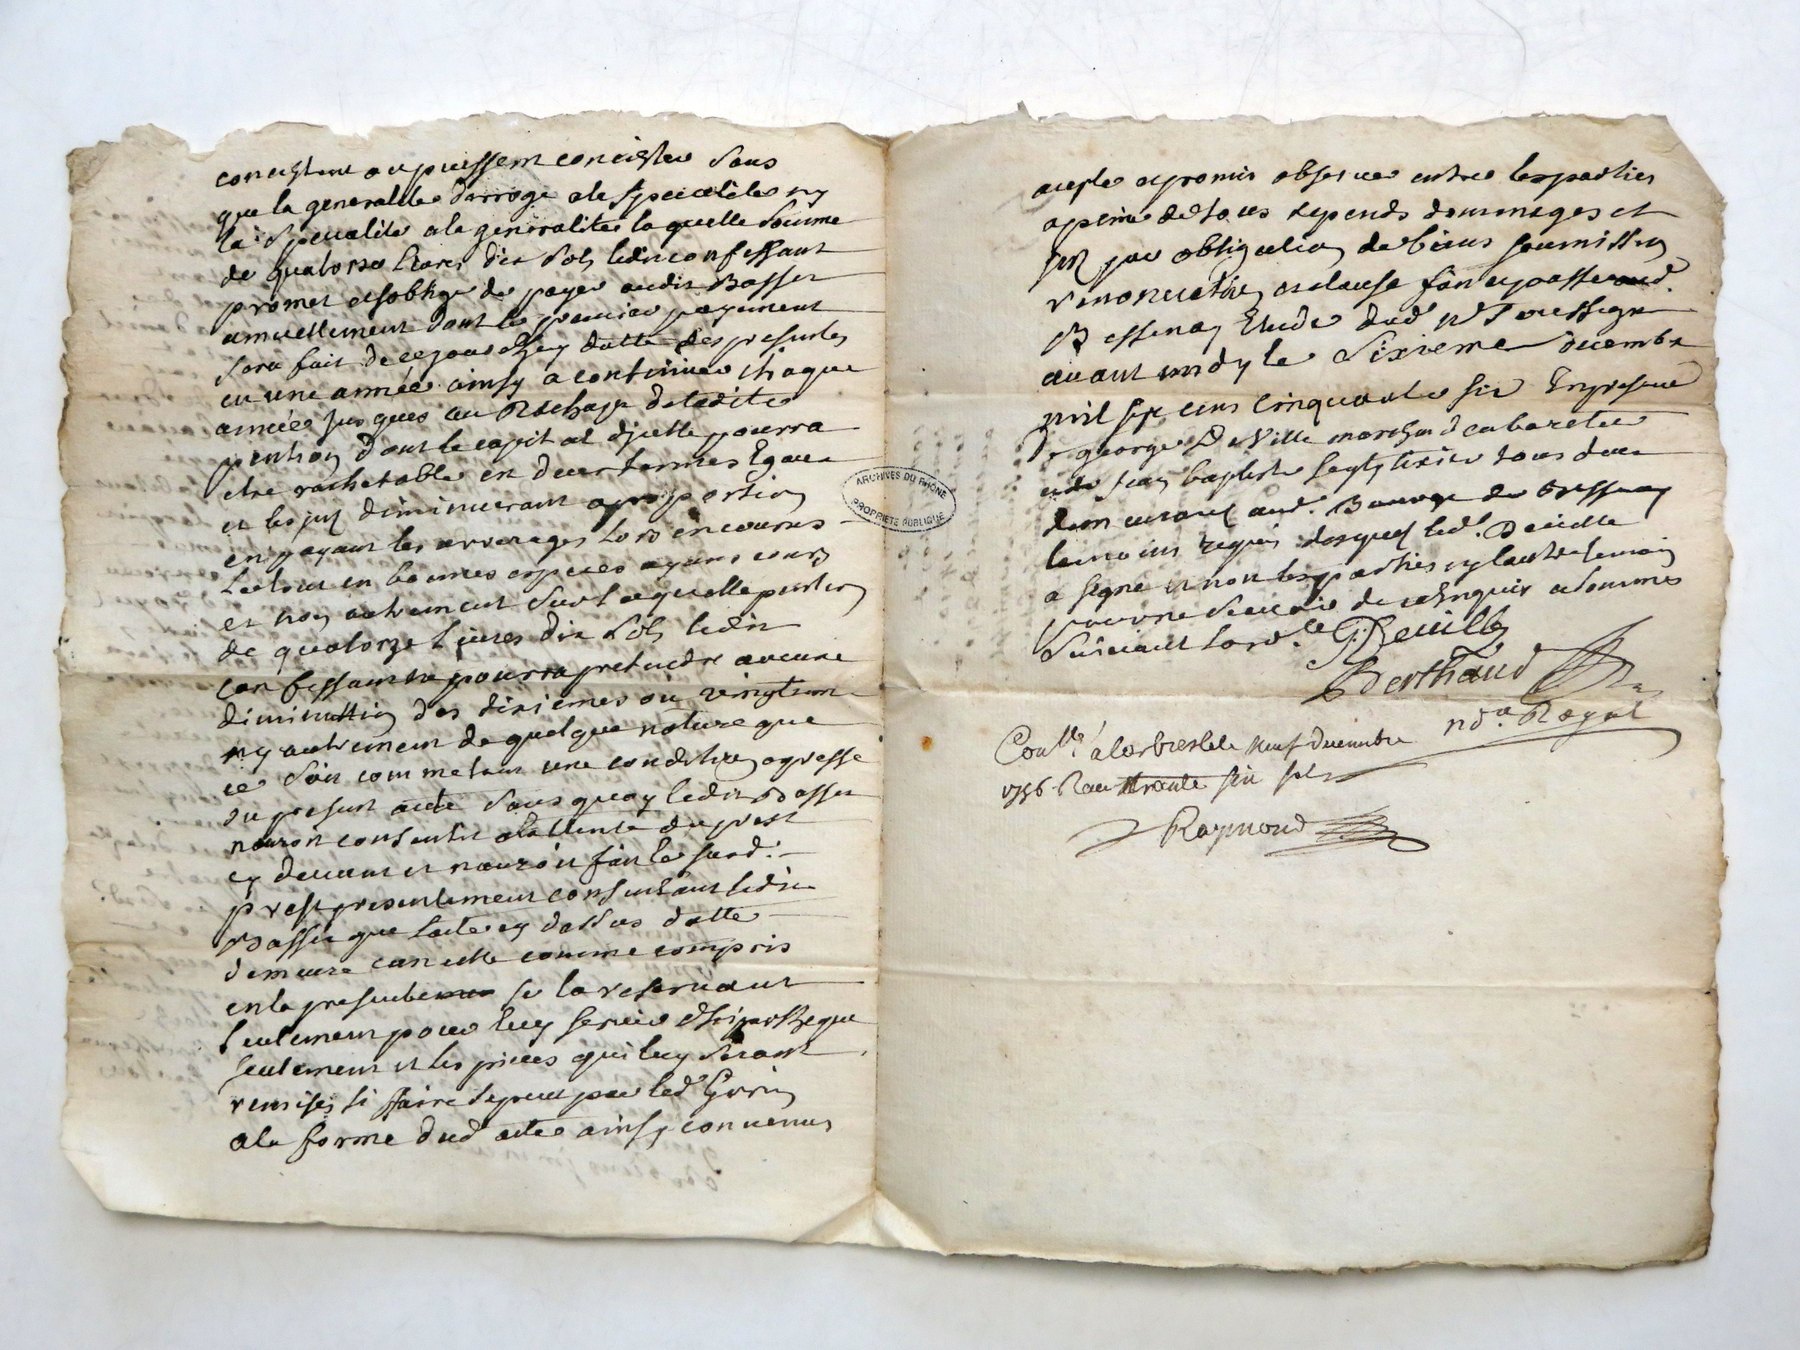 concistent ou puissent concister sans
que la generalite derroge a la specialite ny
la specialite a la generalite laquelle somme
de quatorze livres dix sols ledit confessant
promet et soblige de payer audit Basset
annuellement dont le premier payement
sera fait de ce jourdhuy datte des presentes
en une année ainsy a continuer chaque
année jusques au Rachapt de ladite
pention dont le capital dicelle pourra
etre rachetable en deux termes Egaux
et les diminueront a proportion
en payant les arrerages lors encourus
le tout en bonnes especes ayant cours
et non autrement sur laquelle pention
de quatorze livres dix sols ledit
confessant ne pourra pretendre aucune
diminution des dixiemes ou vingtiemes
ny autrement de quelque nature que
ce soit comme etant une condition expresse
du present acte sans quoy ledit Basset
nauroit consentit a la vente du prest
cy devant et nauroit fait le susd.
prest presentement consentant ledit
Basset que lacte cy dessus datté
demeure cancellé comme compris
en la presente se la reservant
seulement pour luy servir dhipotheque
seulement et les pieces qui luy seront
remises si faire se peut par led Guerin
a la forme dud acte ainsy convenus
accepte et promis observer entre les parties
a peine de tous depends dommages et
par obligation de biens soumission
renonciation et clause fait et passé aud.
Bessenay Etude dud
avant midy le Sixieme decembre
mil sept cens cinquante six En presence
de george Deville marchand cabaretier
et de Jean baptiste tous deux
demeurant aud. Bourg de Bessenay
temoins requis desquels led. Deville
a signé et non les parties ny lautre temoin
pour ne scavoir de ce Enquis et sommés
suivant lord.ce G Deville
Berthaud
nd.re Royal
Conllé a larbresle le neuf decembre
1756 Recu trente six sols
Raymond
ARCHIVES DU RHONE
PROPRIETE PUBLIQUE